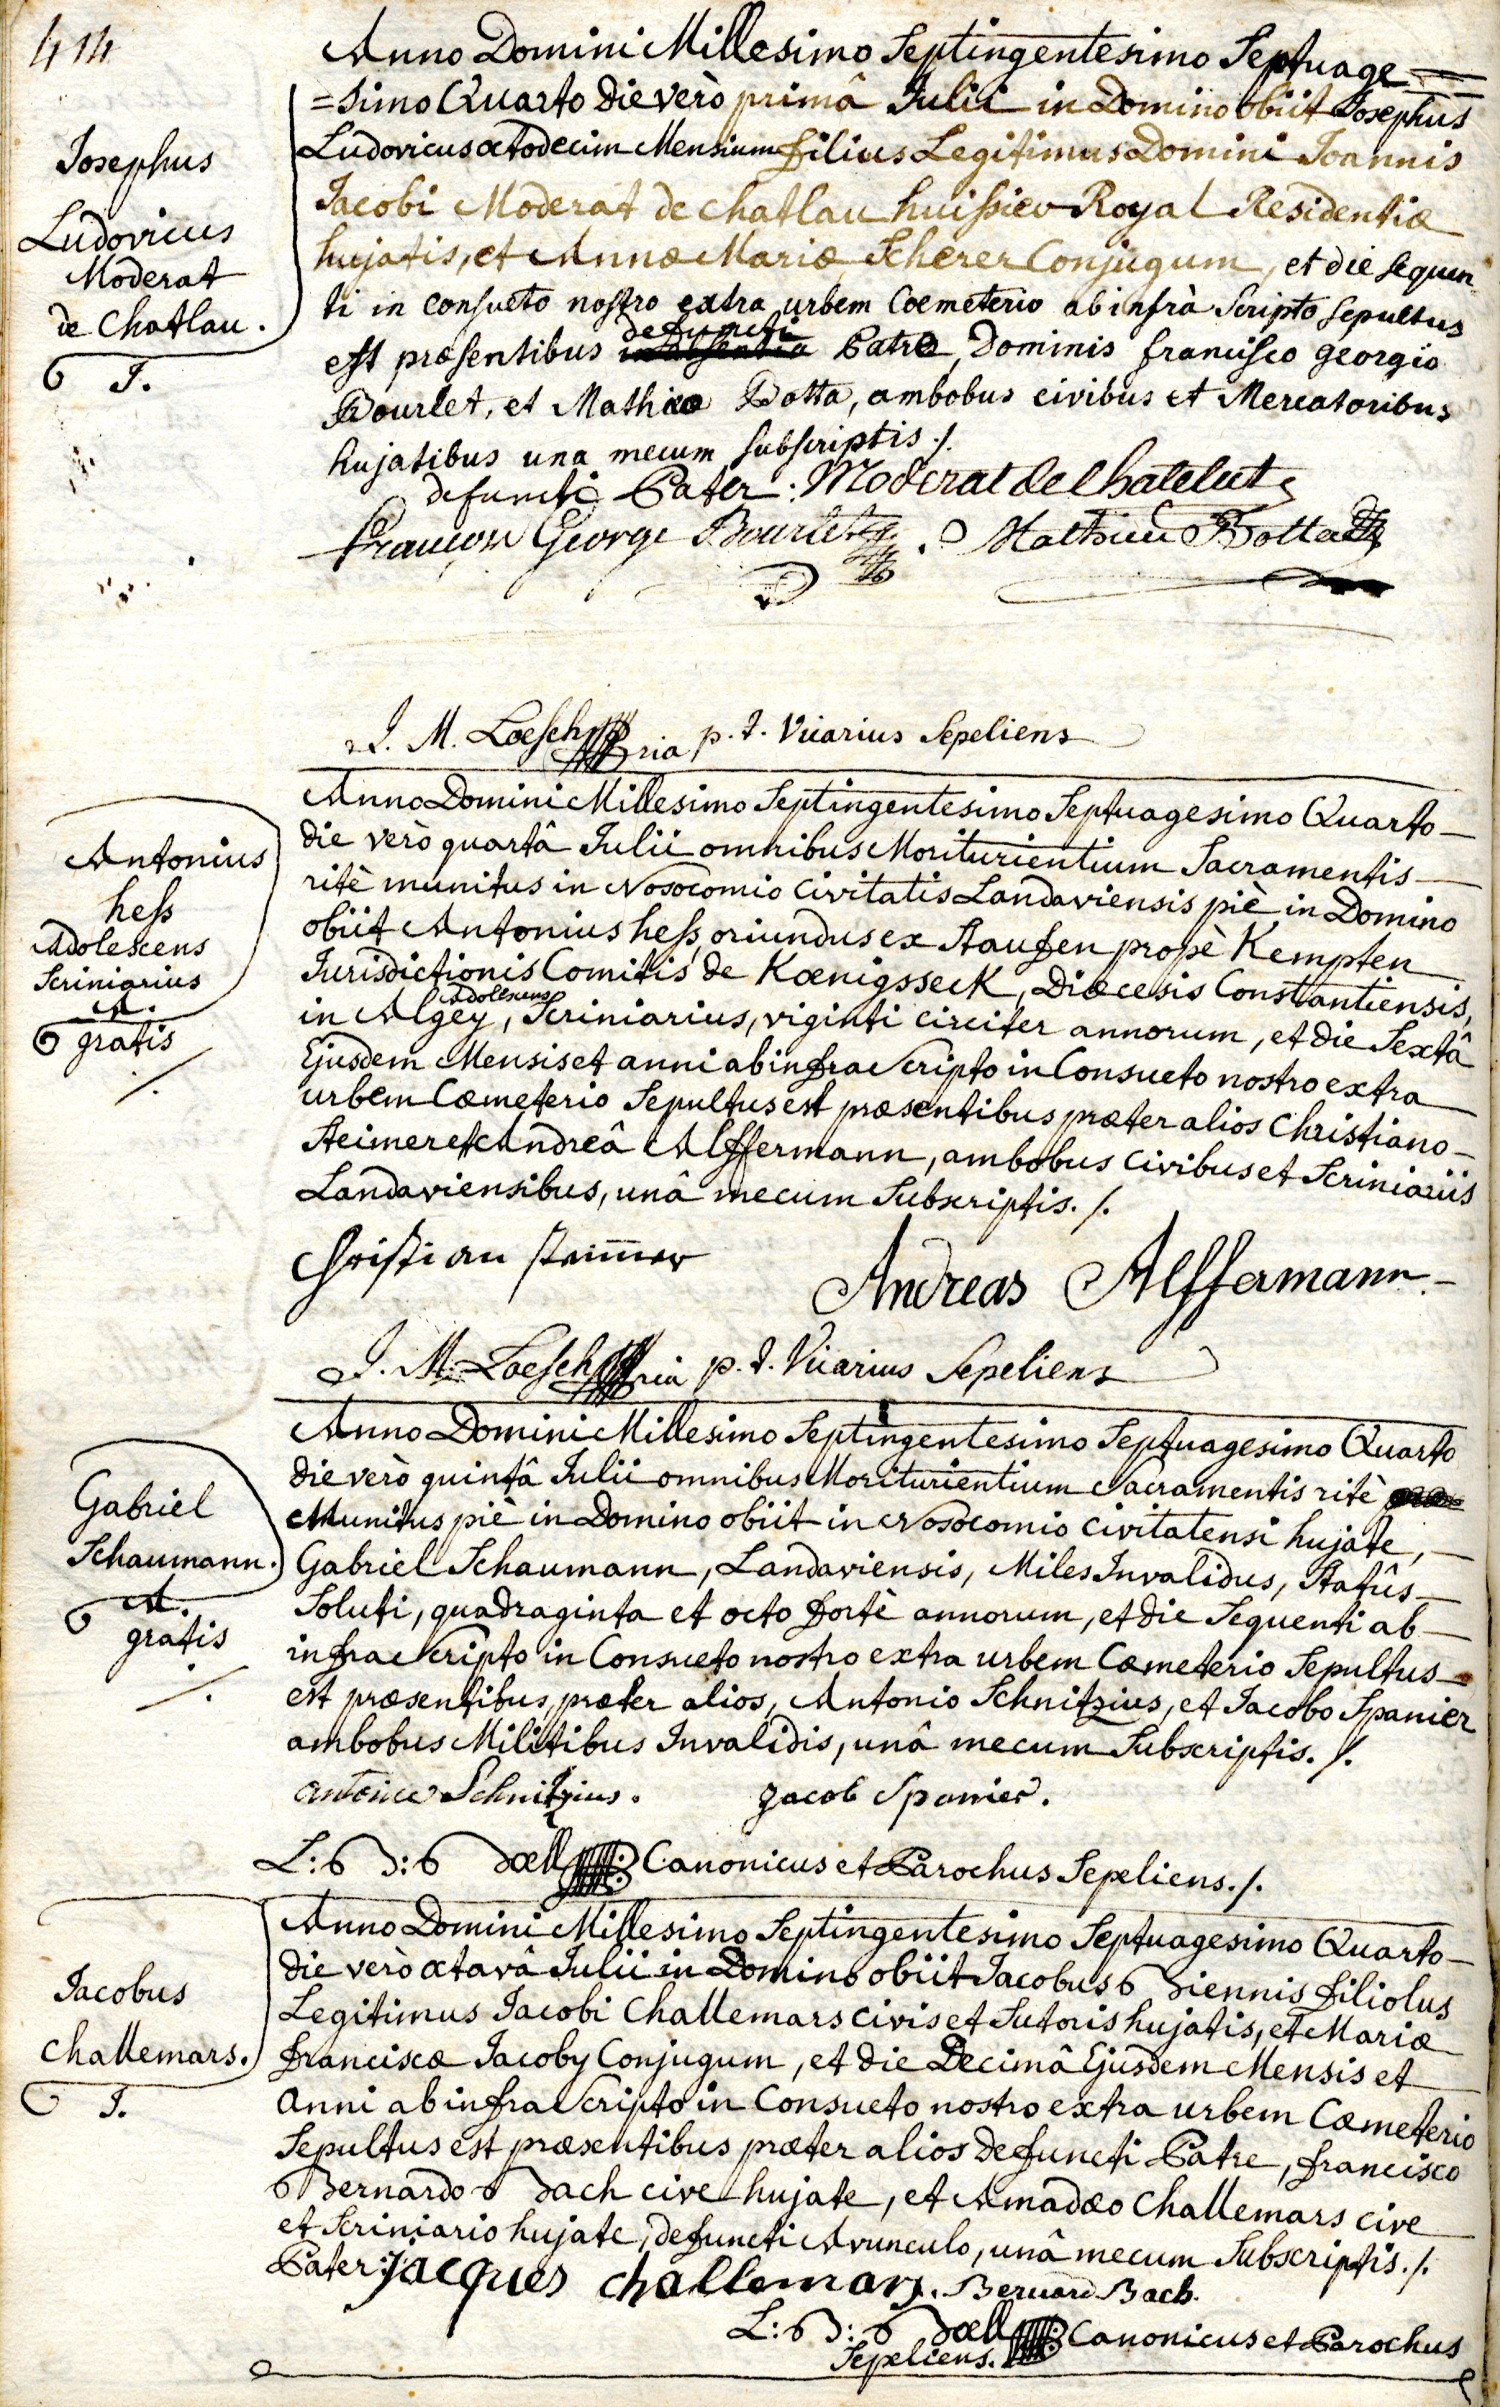 414
Anno Domini Millesimo Septingentesimo Septuage=
=simo Quarto die verò primâ Julii in Domino obiit Josephus
Ludovicus octodecim Mensium filius Legitimus Domini Joannis
Jacobi Moderat de chatlau huissier Royal Residentiæ
hujatis, et Annæ Mariæ Scherer Conjugum, et die sequen
ti in consueto nostro extra urbem Coemeterio ab infrà scripto sepultus
est præsentibus defuncti Patre, Dominis francisco georgio
Bourlet, et Mathæo Botta, ambobus civibus et Mercatoribus
hujatibus una mecum subscriptis ./.
Josephus
Ludovicus
Moderat
de Chatlau.
J.
defuncti Pater: Moderat de Chatelut
François George Bourlet. Mathieu Botta
J. M. Loesch p. t. Vicarius Sepeliens
Anno Domini Millesimo Septingentesimo Septuagesimo Quarto
die verò quartâ Julii omnibus Moriturientium Sacramentis
ritè munitus in Nosocomio Civitatis Landaviensis piè in Domino
obiit Antonius hess, oriundus ex Staufen propè Kempten
Jurisdictionis Comitis de Kœnigsseck, Diœcesis Constantiensis,
in Algey, Adolescens Scriniarius, viginti circiter annorum, et die Sextâ
Ejusdem Mensis et anni ab infra Scripto in Consueto nostro extra
urbem Cœmeterio Sepultus est præsentibus præter alios Christiano
Steimer et Andreâ Alffermann, ambobus Civibus et Scriniariis
Landaviensibus, unâ mecum Subscriptis. /.
Antonius
hess
Adolescens
Scriniarius
A.
gratis
/.
Christian Steimer
Andreas Alffermann
J. M. Loesch p. t. Vicarius Sepeliens
Anno Domini Millesimo Septingentesimo Septuagesimo Quarto
die verò quintâ Julii omnibus Moriturientium Sacramentis ritè
Munitus piè in Domino obiit in Nosocomio civitatensi hujate,
Gabriel Schaumann, Landaviensis, Miles Invalidus, Statûs
Soluti, quadraginta et octo fortè annorum, et die Sequenti ab
infra Scripto in Consueto nostro extra urbem Cœmeterio Sepultus
est præsentibus, præter alios, Antonio Schnitzius, et Jacobo Spanier
ambobus Militibus Invalidis, unâ mecum Subscriptis. /.
Gabriel
Schaumann.
A.
gratis
/.
antoine Schnitzius.
Jacob Spanier.
L: B: Boell Canonicus et Parochus Sepeliens. /.
Anno Domini Millesimo Septingentesimo Septuagesimo Quarto
die verò octavâ Julii in Domino obiit Jacobus Biennis filiolus
Legitimus Jacobi Challemars civis et Sutoris hujatis, et Mariæ
franciscæ Jacoby Conjugum, et die Decimâ Ejusdem Mensis et
Anni ab infra Scripto in Consueto nostro extra urbem Cœmeterio
Sepultus est præsentibus præter alios defuncti Patre, francisco
Bernardo Bach cive hujate, et Amadæo Challemars cive
et Scriniario hujate, defuncti Avunculo, unâ mecum Subscriptis. /.
Jacobus
Challemars.
J.
Pater: jacques challemars. Bernard Bach.
L: B: Boell Canonicus et Parochus
Sepeliens.